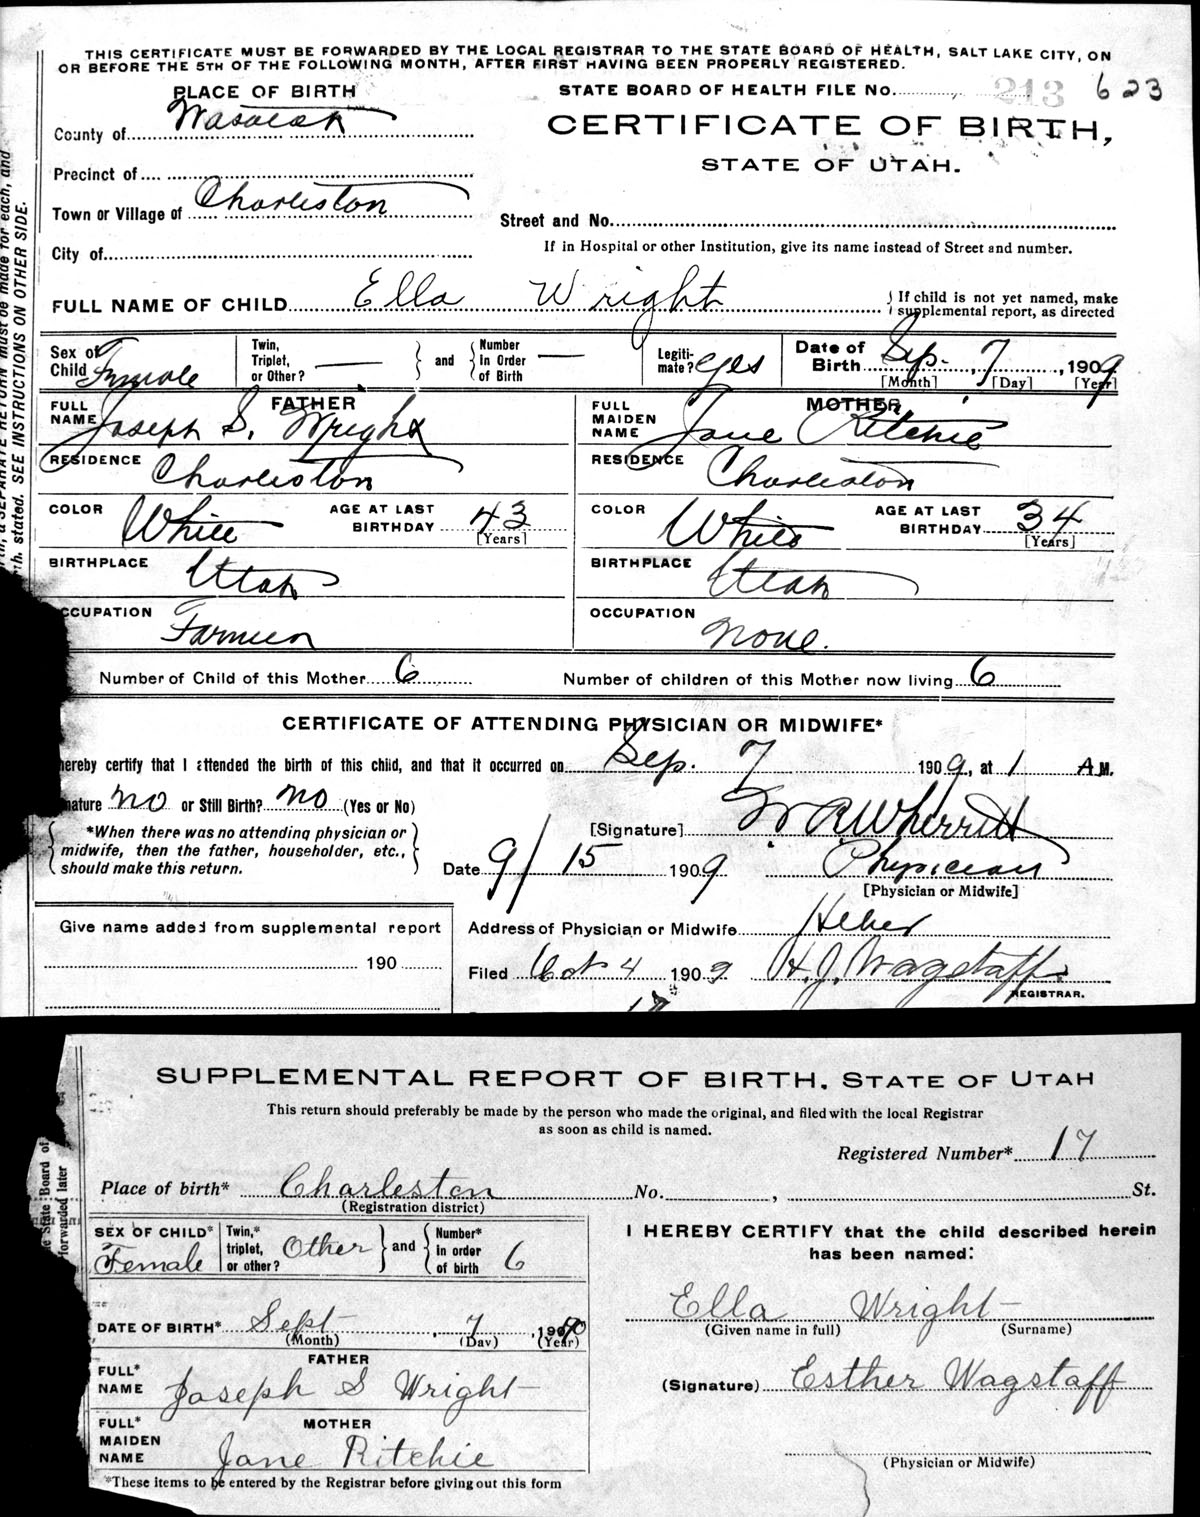 THIS CERTIFICATE MUST BE FORWARDED BY THE LOCAL REGISTRAR TO THE STATE BOARD OF HEALTH, SALT LAKE CITY, ON
OR BEFORE THE 5TH OF THE FOLLOWING MONTH, AFTER FIRST HAVING BEEN PROPERLY REGISTERED.
PLACE OF BIRTH
STATE BOARD OF HEALTH FILE No. 213 623
County of Wasatch
CERTIFICATE OF BIRTH,
STATE OF UTAH.
Precinct of
Town or Village of Charleston
Street and No.
City of
If in Hospital or other Institution, give its name instead of Street and number.
FULL NAME OF CHILD Ella Wright
If child is not yet named, make
supplemental report, as directed
Sex of Child Female
Twin, Triplet, or Other? —
and
Number in Order of Birth —
Legitimate? yes
Date of Birth Sep. 7, 1909
[Month] [Day] [Year]
FATHER
FULL NAME Joseph S. Wright
RESIDENCE Charleston
COLOR White
AGE AT LAST BIRTHDAY 43
[Years]
BIRTHPLACE Utah
OCCUPATION Farmer
MOTHER
FULL MAIDEN NAME Jane Ritchie
RESIDENCE Charleston
COLOR White
AGE AT LAST BIRTHDAY 34
[Years]
BIRTHPLACE Utah
OCCUPATION None.
Number of Child of this Mother 6
Number of children of this Mother now living 6
CERTIFICATE OF ATTENDING PHYSICIAN OR MIDWIFE*
hereby certify that I attended the birth of this child, and that it occurred on Sep. 7 1909, at 1 A.M.
mature no or Still Birth? no (Yes or No)
*When there was no attending physician or
midwife, then the father, householder, etc.,
should make this return.
[Signature] W R Wherritt
Date 9/15 1909 Physician
[Physician or Midwife]
Give name added from supplemental report
190
Address of Physician or Midwife Heber
Filed Oct 4 1909 H. J. Wagstaff
REGISTRAR.
th. stated. SEE INSTRUCTIONS ON OTHER SIDE.
a SEPARATE RETURN must be made for each, and
SUPPLEMENTAL REPORT OF BIRTH. STATE OF UTAH
This return should preferably be made by the person who made the original, and filed with the local Registrar
as soon as child is named.
Registered Number* 17
Place of birth* Charleston No. , St.
(Registration district)
SEX OF CHILD* Female
Twin,* triplet, or other? Other
and
Number* in order of birth 6
I HEREBY CERTIFY that the child described herein
has been named:
Ella Wright
(Given name in full) (Surname)
DATE OF BIRTH* Sept 7, 190
(Month) (Day) (Year)
FATHER
FULL* NAME Joseph S Wright
(Signature) Esther Wagstaff
MOTHER
FULL* MAIDEN NAME Jane Ritchie
(Physician or Midwife)
*These items to be entered by the Registrar before giving out this form
the State Board of
forwarded later